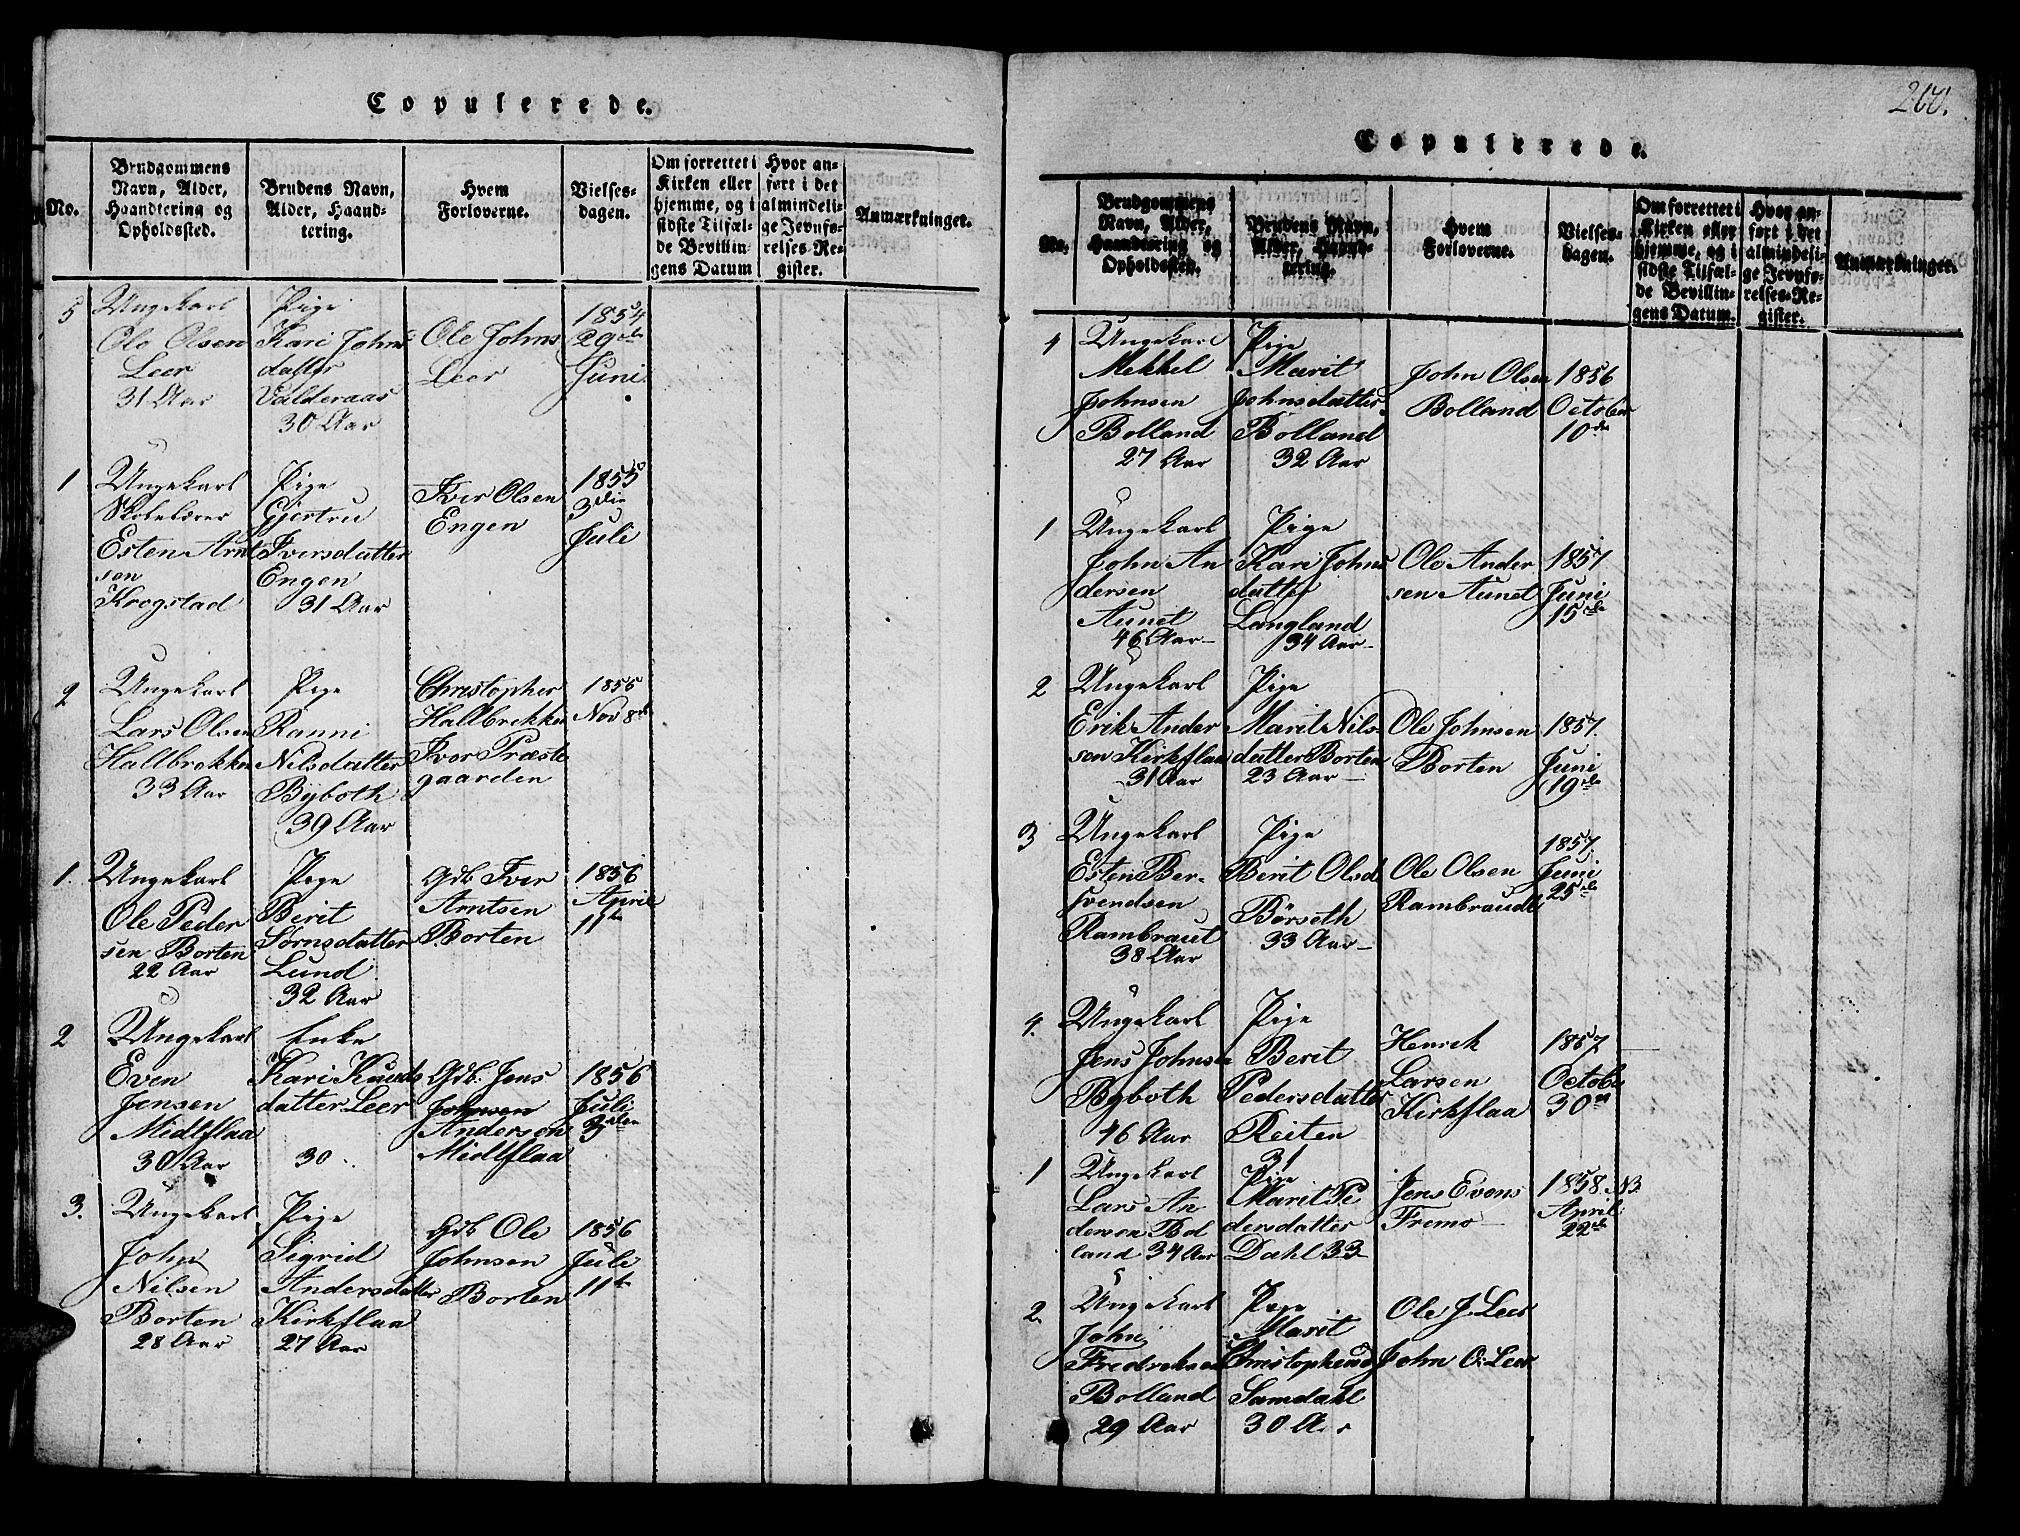 Copulerede.
No.
Brudgommens
Navn, Alder,
Haandtering og
Opholdssted.
Brudens Navn,
Alder, Haand-
tering.
Hvem
Forloverne.
Vielses-
dagen.
Om forrettet i
Kirken eller
hjemme, og i
sidste Tilfæl-
de Bevillin-
gens Datum
Hvor an-
ført i det
almindeli-
ge Jevnfø-
relses-Re-
gister.
Anmærkninger.
5
Ungekarl
Ole Olsen
Leer
31 Aar
Pige
Kari Johns
datter
Valderaas
30 Aar
Ole Johns
Leer
1854
29de
Juni
1
Ungekarl
Skolelærer
Esten Arnt
sen
Krogstad
Pige
Gjertru
Iversdatter
Engen
31 Aar
Iver Olsen
Engen
1855
3die
Juli
2
Ungekarl
Lars Olsen
Hallbrekken
33 Aar
Pige
Ranni
Nilsdatter
Byboth
39 Aar
Christopher
Hallbrekken
Iver Præste
gaarden
1855
Nov 8de
1.
Ungekarl
Ole Peder
sen Borten
22 Aar
Pige
Berit
Sørnsdatter
Lund
32 Aar
Gdb Iver
Arntsen
Borten
1856
April
11te
2
Ungekarl
Even
Jensen
Midtflaa
30 Aar
Enke
Kari Knuds
datter Leer
30
Gdb. Jens
Johnsen
Anderson
Midtflaa
1856
Juli
3
3.
Ungekarl
John
Nilsen
Borten
28 Aar
Pige
Sigrid
Andersdatter
Kirkflaa
27 Aar
Gdb Ole
Johnsen
Borten
1856
Juli
11te
Copulerede.
No.
Brudgommens
Navn, Alder,
Haandtering og
Opholdssted.
Brudens Navn,
Alder, Haand-
tering.
Hvem
Forloverne.
Vielses-
dagen.
Om forrettet i
Kirken eller
hjemme, og i
sidste Tilfæl-
de Bevillin-
gens Datum.
Hvor an-
ført i det
almindeli-
ge Jevnfø-
relses-Re-
gister.
Anmærkninger.
4
Ungekarl
Mekkel
Johnsen
Bolland
27 Aar
Pige
Marit
Johnsdatter
Bolland
32 Aar
John Olsen
Bolland
1856
October
10de
1
Ungekarl
John An
dersen
Aunet
46 Aar
Pige
Kari Johns
datter
Langland
34 Aar
Ole Ander
sen Aunet
1857
Juni
15de
2
Ungekarl
Erik Ander
sen Kirkflaa
31 Aar
Pige
Marit Nils
datter Borten
23 Aar
Ole Johnsen
Borten
1857.
Juni
19de
3
Ungekarl
Esten Ber-
svendsen
Rambraut
38 Aar
Pige
Berit Olsd
Börseth
33 Aar
Ole Olsen
Rambraudt
1857.
Juni
25de
4.
Ungekarl
Jens Johnsen
Byboth
46 Aar
Pige
Berit
Pedersdatter
Reiten
31
Henrik
Larsen
Kirkflaa
1857
October
30
1
Ungekarl
Lars An
dersen Bol
land 34 Aar
Pige
Marit Pe
dersdatter
Dahl 33
Jens Evens
Fremo
1858 NB.
April
22de
2.
Ungekarl
John
Fredreksen
Bolland
29 Aar
Pige
Marit
Christophersd
Samdahl
30 Aar
Ole J. Leer
John O. Leer